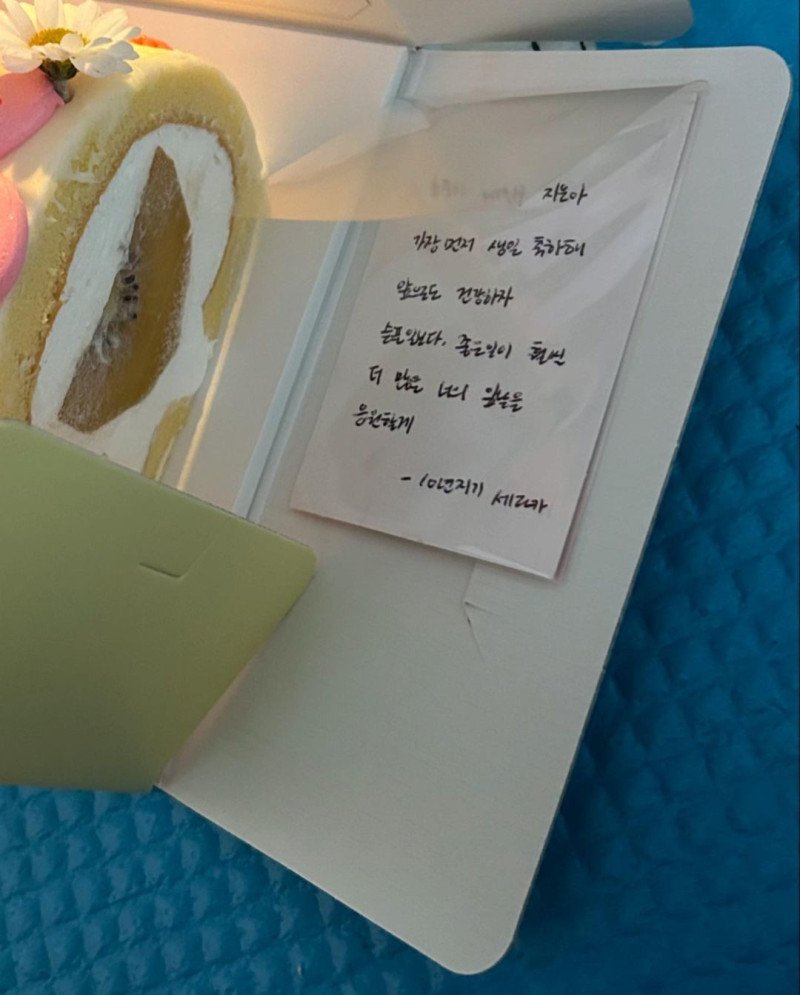 지문아
가장 먼저 생일 축하해
앞으로도 건강하자
슬픈일보다, 좋은일이 훨씬
더 많을 너의 앞날을
응원할게
- 10년지기 세리카